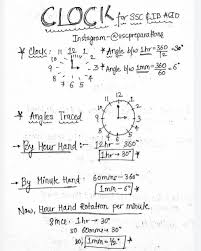 CLOCK for SSC & IB ACIO
Instagram-@sscpreparations
* Clock: 11 12 1
10 2
9 3
8 4
7 6 5
* Angle b/w 1hr = 360/12 = 30°
* Angle b/w 1min = 360/60 = 6°
* Angles Traced
→ By Hour Hand:→ 12hr → 360°
1hr → 30°
→ By Minute Hand:→ 60mins → 360°
1min → 6°
Now, Hour Hand Rotation per minute.
Since: 1hr → 30°
so 60mins → 30°
so, 1min = ½°